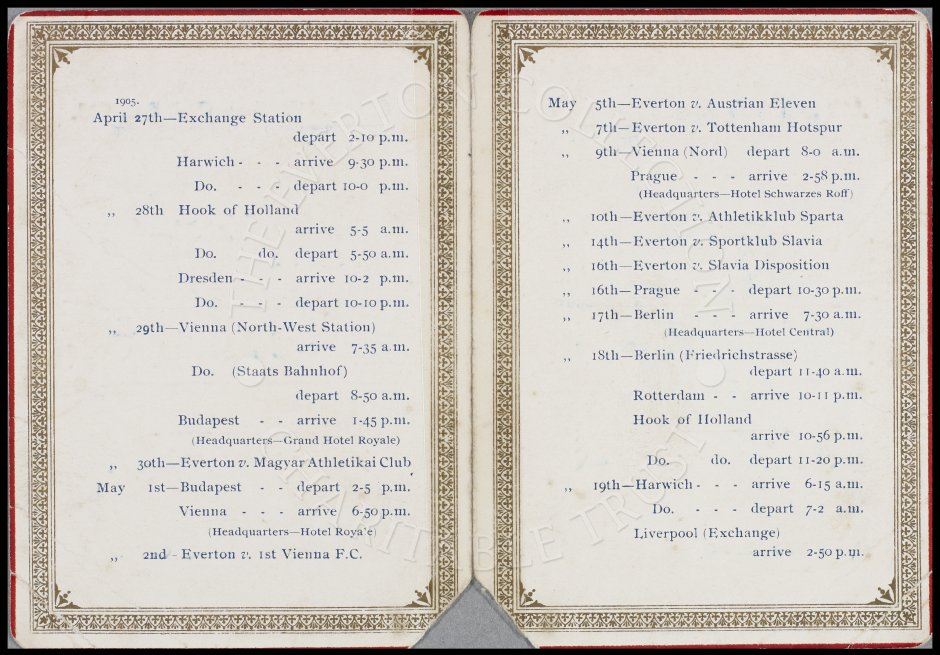 1905.
April 27th—Exchange Station
depart 2-10 p.m.
Harwich - - - arrive 9-30 p.m.
Do. - - - depart 10-0 p.m.
„ 28th Hook of Holland
arrive 5-5 a.m.
Do. do. depart 5-50 a.m.
Dresden - - - arrive 10-2 p.m.
Do. - - - depart 10-10 p.m.
„ 29th—Vienna (North-West Station)
arrive 7-35 a.m.
Do. (Staats Bahnhof)
depart 8-50 a.m.
Budapest - - arrive 1-45 p.m.
(Headquarters—Grand Hotel Royale)
„ 30th—Everton v. Magyar Athletikai Club
May 1st—Budapest - - depart 2-5 p.m.
Vienna - - - arrive 6-50 p.m.
(Headquarters—Hotel Royale)
„ 2nd - Everton v. 1st Vienna F.C.
May 5th—Everton v. Austrian Eleven
„ 7th—Everton v. Tottenham Hotspur
„ 9th—Vienna (Nord) depart 8-0 a.m.
Prague - - - arrive 2-58 p.m.
(Headquarters—Hotel Schwarzes Roff)
„ 10th—Everton v. Athletikklub Sparta
„ 14th—Everton v. Sportklub Slavia
„ 16th—Everton v. Slavia Disposition
„ 16th—Prague - - - depart 10-30 p.m.
„ 17th—Berlin - - - arrive 7-30 a.m.
(Headquarters—Hotel Central)
„ 18th—Berlin (Friedrichstrasse)
depart 11-40 a.m.
Rotterdam - - arrive 10-11 p.m.
Hook of Holland
arrive 10-56 p.m.
Do. do. depart 11-20 p.m.
„ 19th—Harwich - - - arrive 6-15 a.m.
Do. - - - depart 7-2 a.m.
Liverpool (Exchange)
arrive 2-50 p.m.
THE EVERTON COLLECTION
CHARITABLE TRUST